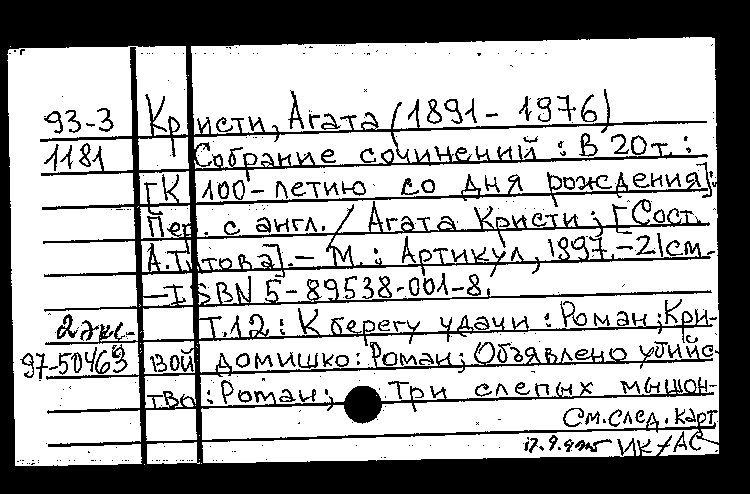 93-3 Кристи, Агата (1891 - 1976)
1181 Собрание сочинений : В 20 т. :
[К 100-летию со дня рождения]:
Пер. с англ. / Агата Кристи ; [Сост.
А. Титова]. – М. : Артикул, 1897. – 21 см. –
– ISBN 5-89538-001-8.
2 экз. Т.12 : К берегу удачи : Роман ; Кри-
97-50463 вой домишко : Роман ; Объявлено убийс-
тво : Роман ; Три слепых мышон-
См. след. карт
17.9. ИК/АС